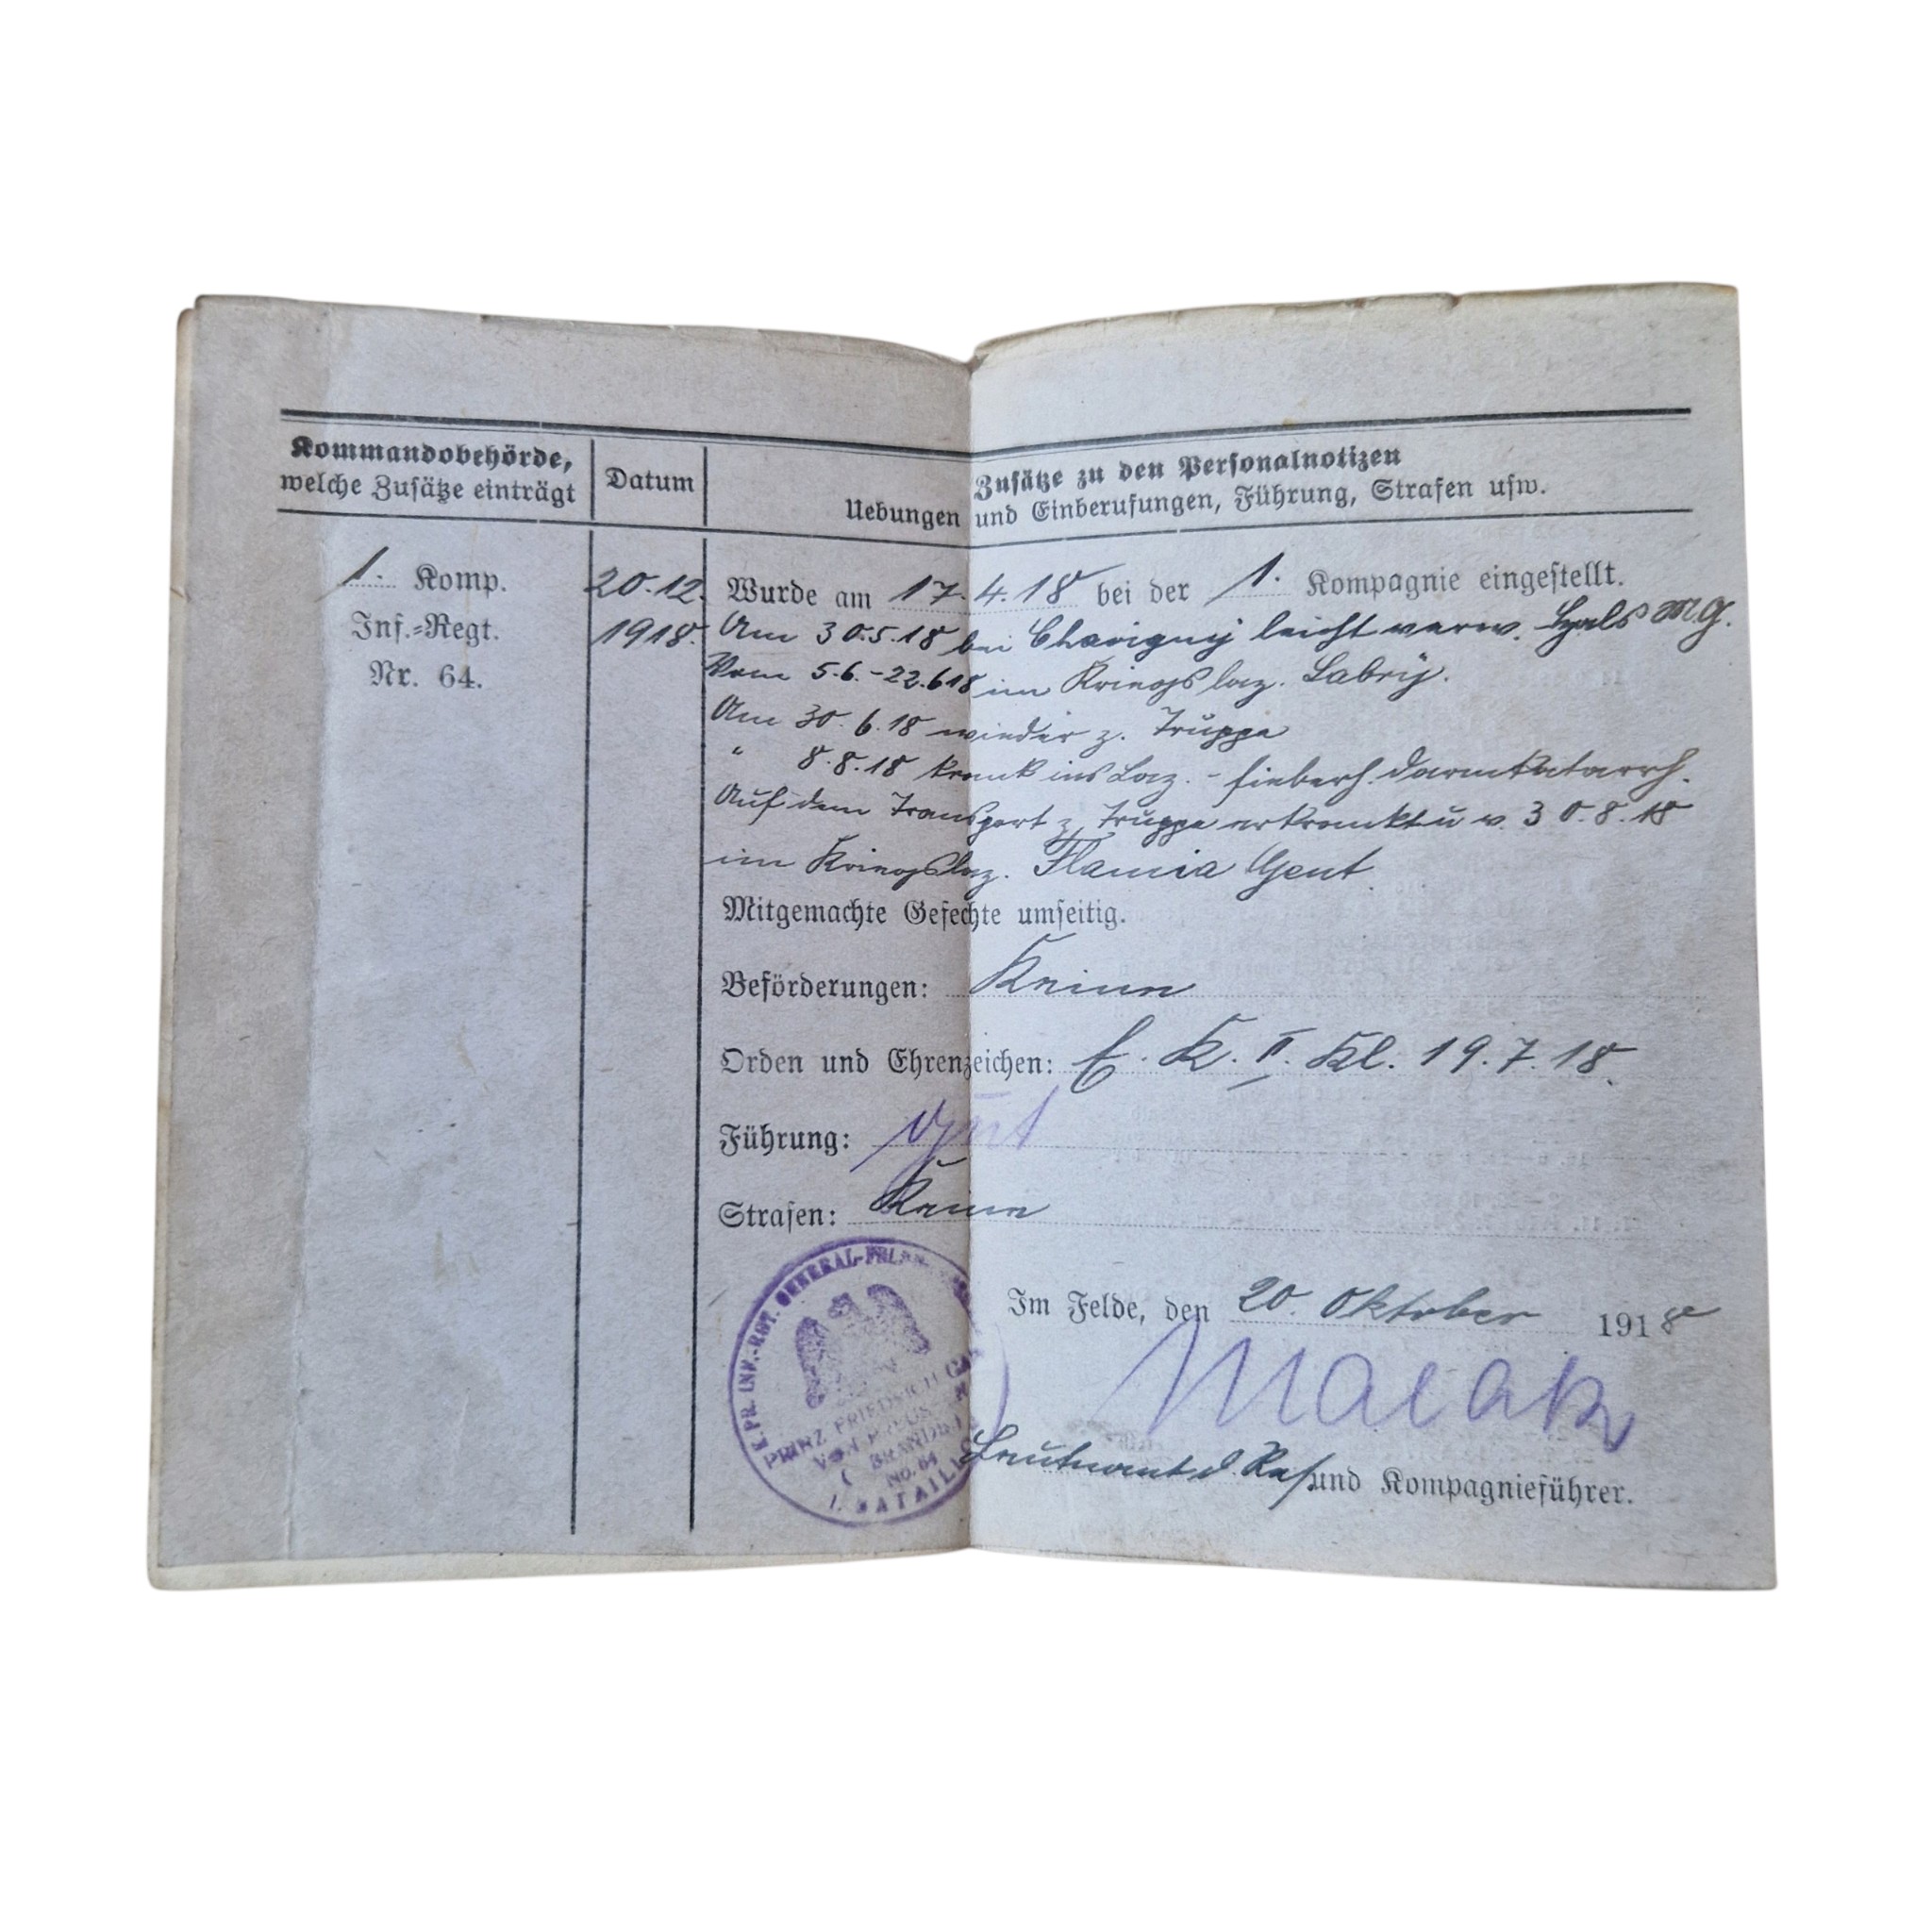 Kommandobehörde,
welche Zusätze einträgt
Datum
Zusätze zu den Personalnotizen
Uebungen und Einberufungen, Führung, Strafen usw.
1. Komp.
Inf.-Regt.
Nr. 64.
20.12.
1918.
Wurde am 17.4.18 bei der 1. Kompagnie eingestellt.
Am 30.5.18 bei Chavigny leicht verw. Hals MG.
Vom 5.6.-22.6 18 im Kriegslaz. Labry.
Am 30.6.18 wieder z. Truppe
" 8.8.18 krank ins Laz. - fieberh. Darmkatarrh.
Auf dem Transport z. Truppe erkrankt u v. 30.8.18
im Kriegslaz. Gent.
Mitgemachte Gefechte umseitig.
Beförderungen: Keine
Orden und Ehrenzeichen: E. K. II. Kl. 19.7.18.
Führung: Gut
Strafen: Keine
K. PR. INF.-RGT. GENERAL-FELD
PRINZ FRIEDRICH
VON PREUS
BRANDBG
NO. 64
I. BATAILLON
Im Felde, den 20. Oktober 1918
Leutnant d. Res. und Kompagnieführer.